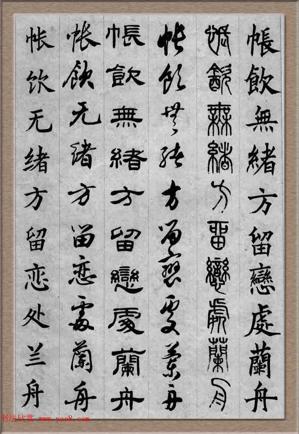 帳飲無緒方留戀處蘭舟
帳飲無緒方留戀處蘭舟
帐饮无绪方留恋处兰舟
帳飲無緒方留戀處蘭舟
帳飲无緒方留恋處蘭舟
帐饮无绪方留恋处兰舟